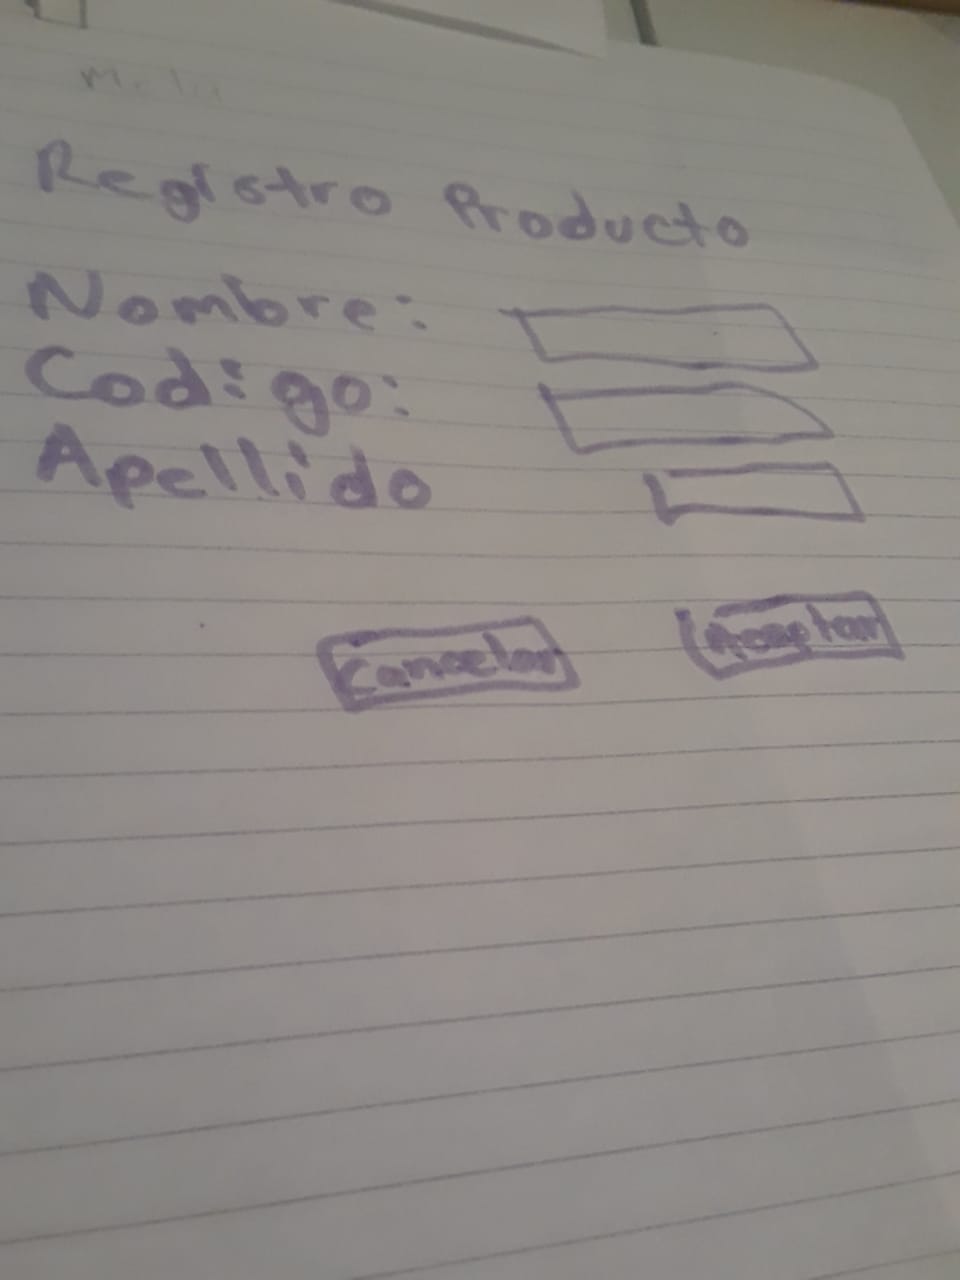 Registro Producto
Nombre:
Codigo:
Apellido
Cancelar
Aceptar